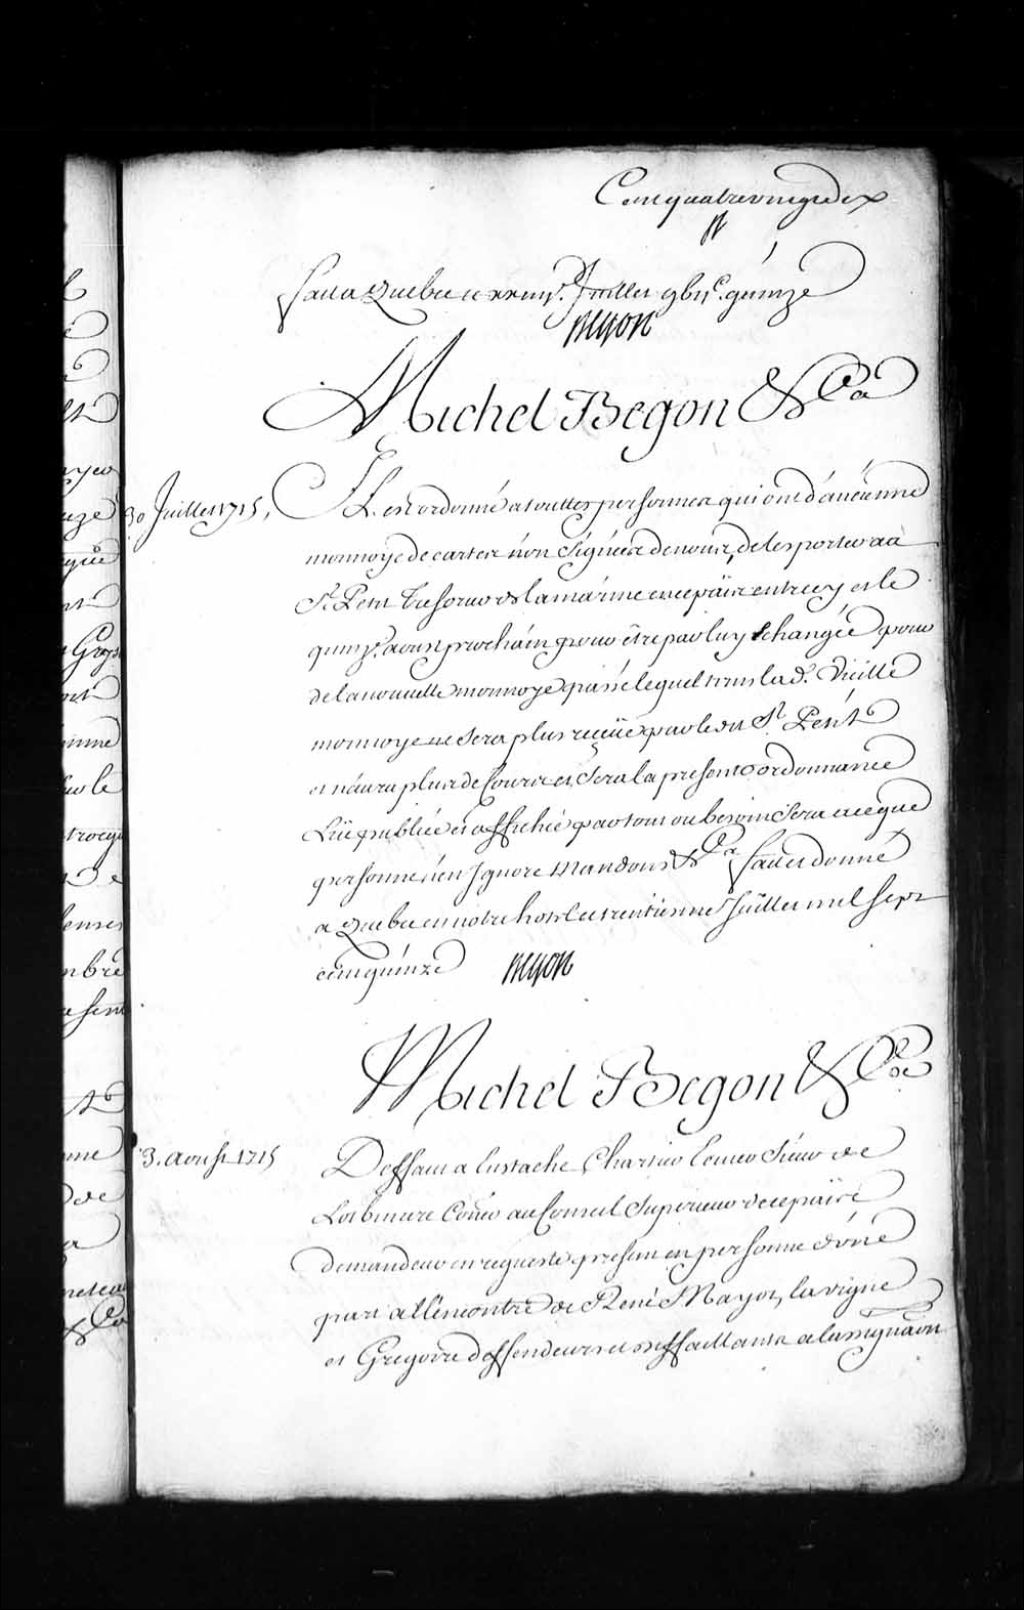 Cent quatrevingtdix
fait a Quebec ce Juillet gbiic. quinze
Begon
Michel Begon &Ca
30 Juillet 1715,
IL est ordonné a touttes personnes qui ont d'ancienne
monnoye de cartes non signées de nous, de les porter au
Sr. Petit Tresorier de la marine en ce päis entre cy et le
quinze. aoust prochain pour être par luy échangée pour
de la nouvelle monnoye passé lequel tems lad. Vieille
monnoye ne sera plus reçüe par led Sr. Petit
et n'aura plus de Cours et, sera la presente ordonnance
Lüe publiée et affichée partout ou besoin sera ace que
personne n'en Ignore Mandons &Ca fait et donné
a Quebec en notre hotel le trentieme Juillet mil sept
cent quinze Begon
Michel Begon &Ca
3. Aoust 1715
Deffaut a Eustache Chartier Ecuier Sieur de
Lotbiniere Coner au Conseil Superieur de ce päis
demandeur en requeste present en personne d'une
part a l'encontre de René Mayot, la vigne
et Gregoire deffendeurs et deffaillants a l'assignaon